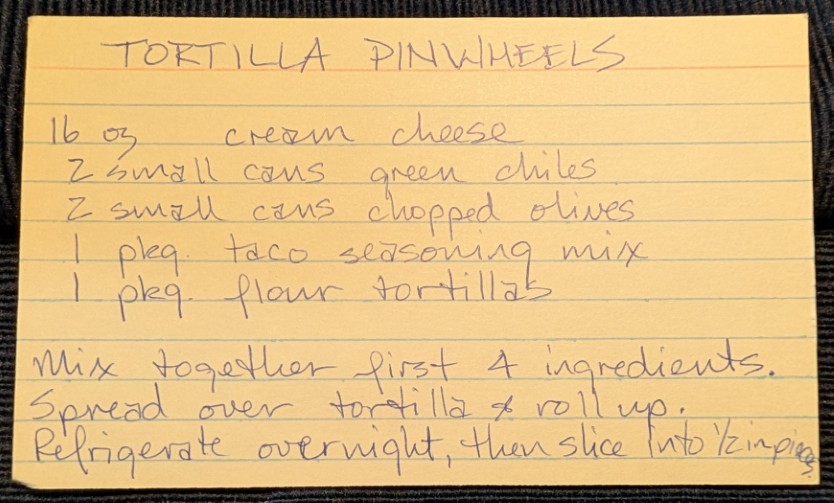 TORTILLA PINWHEELS
16 oz cream cheese
2 small cans green chiles
2 small cans chopped olives
1 pkg. taco seasoning mix
1 pkg. flour tortillas
Mix together first 4 ingredients.
Spread over tortilla & roll up.
Refrigerate overnight, then slice into 1/2 in pieces.